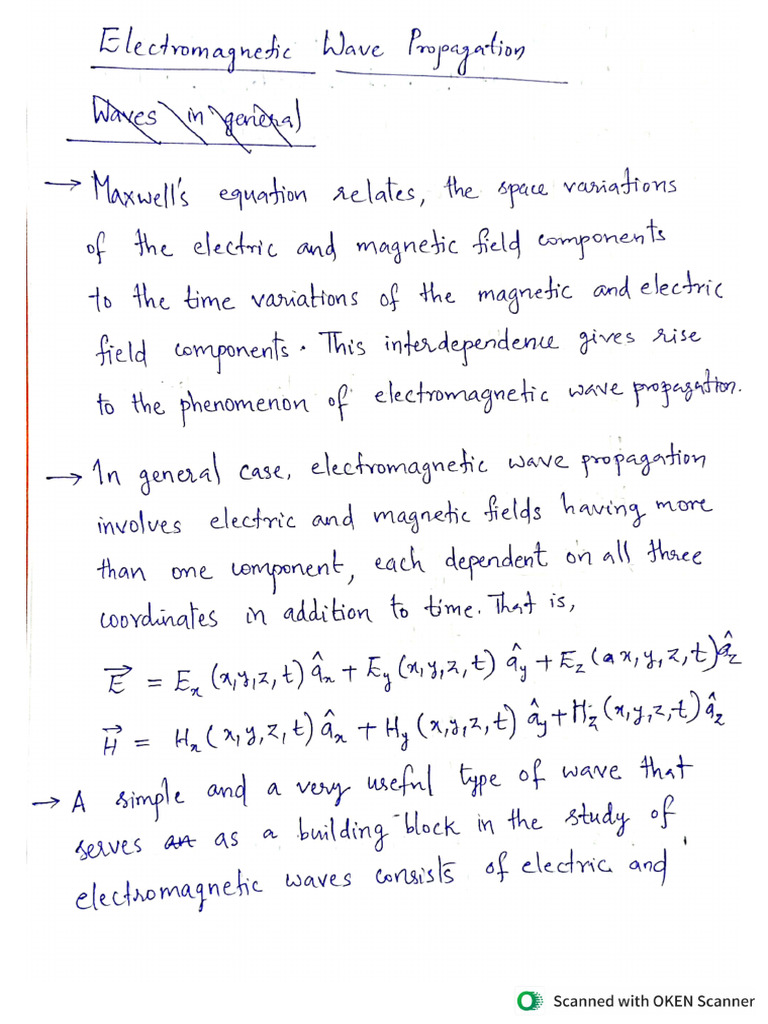 Electromagnetic Wave Propagation
Waves in general
→ Maxwell's equation relates, the space variations
of the electric and magnetic field components
to the time variations of the magnetic and electric
field components. This interdependence gives rise
to the phenomenon of electromagnetic wave propagation.
→ In general case, electromagnetic wave propagation
involves electric and magnetic fields having more
than one component, each dependent on all three
coordinates in addition to time. That is,
E⃗ = Eₓ (x,y,z,t) âₓ + E_y (x,y,z,t) â_y + E_z (a x,y,z,t) â_z
H⃗ = Hₓ (x,y,z,t) âₓ + H_y (x,y,z,t) â_y + H_z (x,y,z,t) â_z
→ A simple and a very useful type of wave that
serves an as a building block in the study of
electromagnetic waves consists of electric and
Scanned with OKEN Scanner